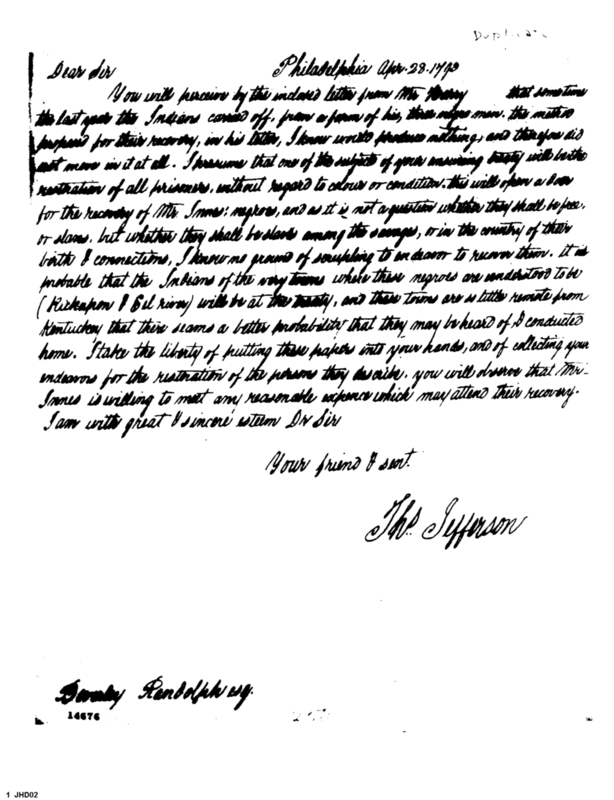 Duplicate
Dear Sir Philadelphia Apr. 28. 1793
You will perceive by the inclosed letter from Mr that sometime
the last year the Indians carried off, from a farm of his, three negro men. the method
proposed for their recovery, in his letter, I knew would produce nothing, and therefore did
not move in it at all. I presume that one of the subjects of your ensuing treaty will be the
restoration of all prisoners, without regard to colour or condition. this will open a door
for the recovery of Mr Innes's negroes, and as it is not a question whether they shall be free,
or slaves, but whether they shall be slaves among the savages, or in the country of their
birth & connections, I know no ground of scrupling to endeavor to recover them. It is
probable that the Indians of the very towns where these negroes are understood to be
(Kickapou & Eel river) will be at the treaty, and these towns are so little remote from
Kentuckey that there seems a better probability that they may be heard of & conducted
home. I take the liberty of putting these papers into your hands, and of your
endeavors for the restoration of the persons they describe. you will observe that Mr
Innes is willing to meet any reasonable expence which may attend their recovery.
I am with great & sincere esteem Dr Sir
Your friend & servt.
Ths. Jefferson
Beverley Randolph esq.
14676
1 JHD02